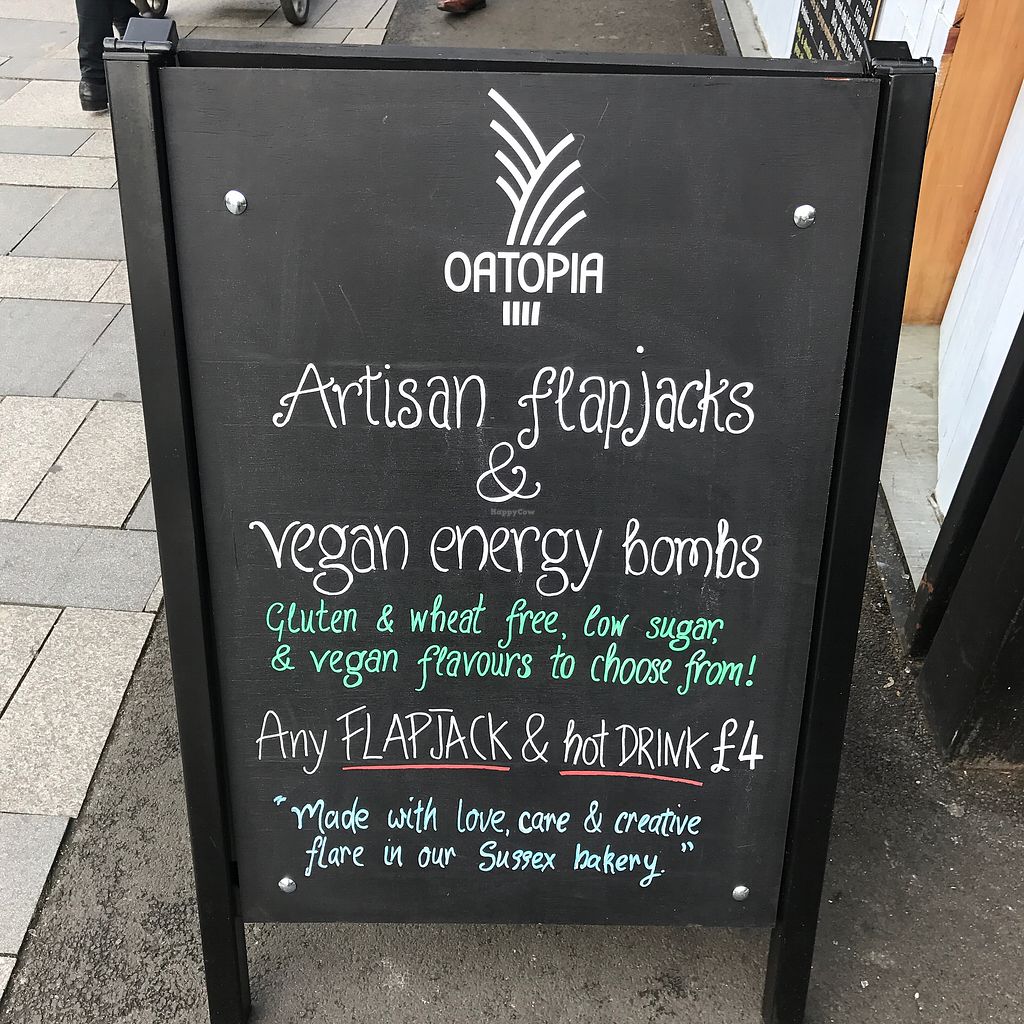 OATOPIA
Artisan flapjacks
&
HappyCow
vegan energy bombs
Gluten & wheat free, low sugar,
& vegan flavours to choose from!
Any FLAPJACK & hot DRINK £4
"Made with love, care & creative
flare in our Sussex bakery."